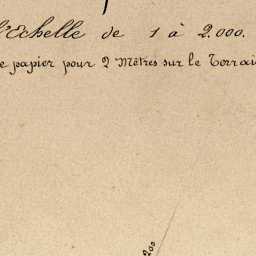 l'Echelle de 1 à 2.000.
e papier pour 2 Mètres sur le Terrai
200